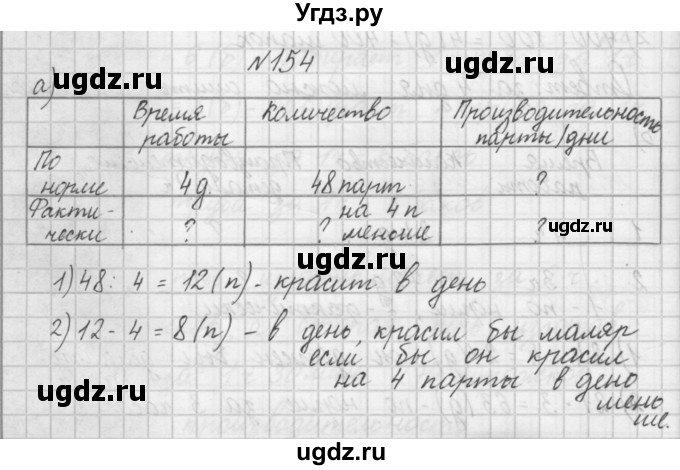 Угдз.ру
№154
а)
Время работы
Количество
Производительность парты/дни
По норме
4д.
48 парт
?
Факти-чески
?
? на 4 п меньше
?
1) 48 : 4 = 12 (п) - красит в день
2) 12 - 4 = 8 (п) - в день, красил бы маляр
если бы он красил
на 4 парты в день
мень
ше.
ugdz.ru
ugdz.ru
ugdz.ru
ugdz.ru
ugdz.ru
ugdz.ru
ugdz.ru
ugdz.ru